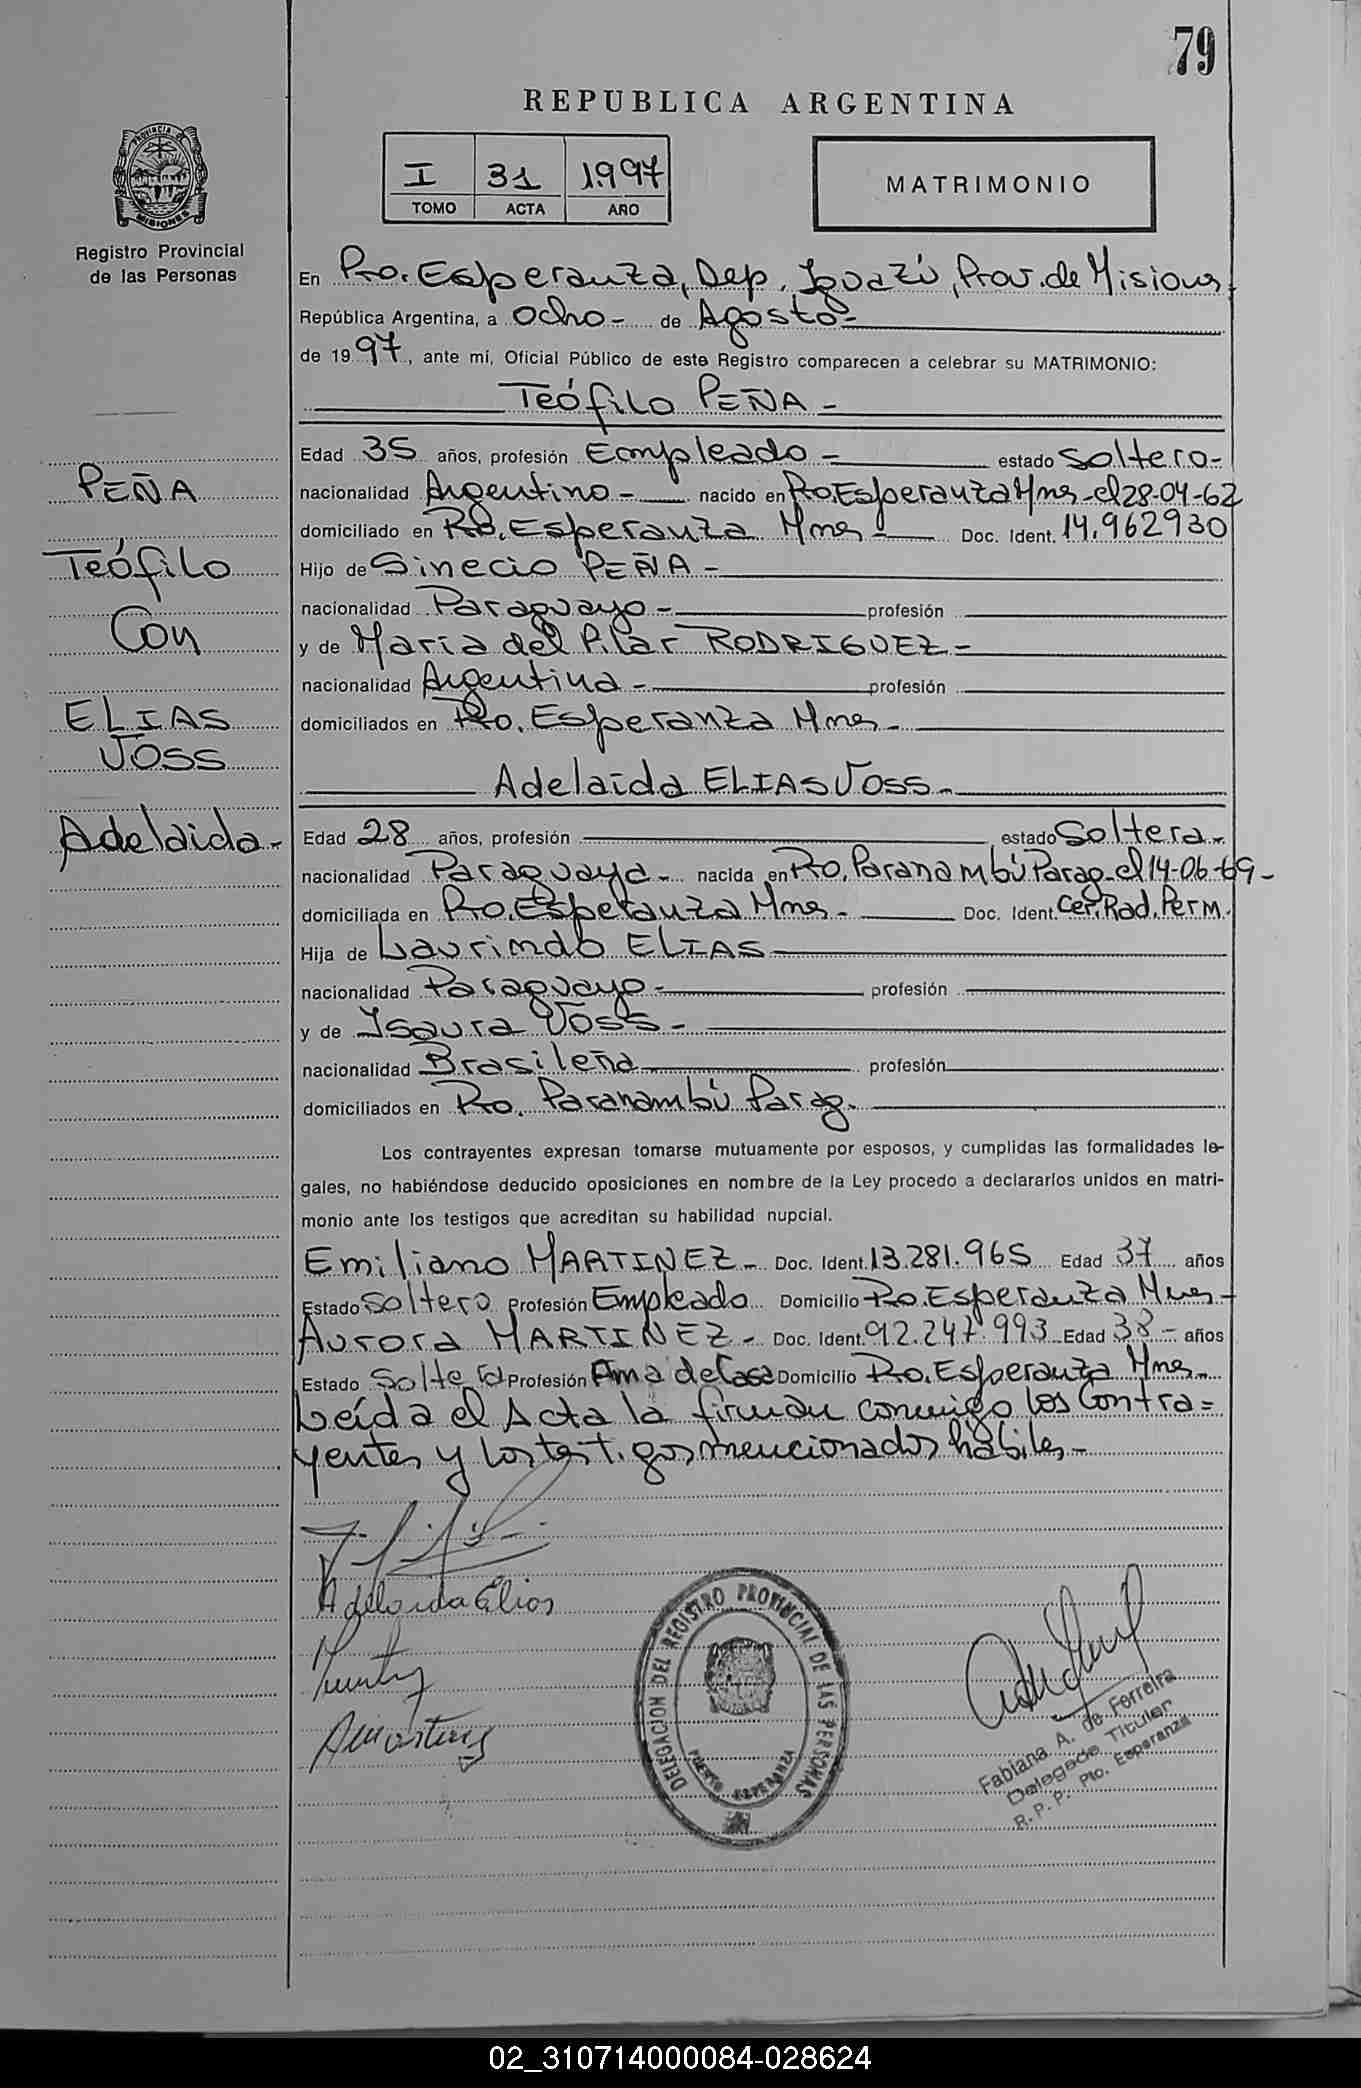 79
REPUBLICA ARGENTINA
I 31 1.997
TOMO ACTA AÑO
MATRIMONIO
PROVINCIA DE MISIONES
Registro Provincial
de las Personas
En Pto. Esperanza, Dep. Iguazú, Prov. de Misiones,
República Argentina, a Ocho- de Agosto-
de 1997, ante mí, Oficial Público de este Registro comparecen a celebrar su MATRIMONIO:
Teófilo PEÑA-
Edad 35 años, profesión Empleado- estado Soltero-
nacionalidad Argentino- nacido en Pto. Esperanza Mnes-el 28-04-62
domiciliado en Pto. Esperanza Mnes- Doc. Ident. 14.962930
Hijo de Sinecio PEÑA-
nacionalidad Paraguayo- profesión
y de María del Pilar RODRIGUEZ-
nacionalidad Argentina- profesión
domiciliados en Pto. Esperanza Mnes-
Adelaida ELIAS VOSS-
Edad 28 años, profesión estado Soltera-
nacionalidad Paraguaya- nacida en Pto. Paranambú Parag-el 14-06-69-
domiciliada en Pto. Esperanza Mnes- Doc. Ident. Cer. Rad. Perm.
Hija de Laurindo ELIAS
nacionalidad Paraguayo- profesión
y de Isaura VOSS-
nacionalidad Brasileña profesión
domiciliados en Pto. Paranambú Parag.
PEÑA
Teófilo
Con
ELIAS
VOSS
Adelaida-
Los contrayentes expresan tomarse mutuamente por esposos, y cumplidas las formalidades le-
gales, no habiéndose deducido oposiciones en nombre de la Ley procedo a declararlos unidos en matri-
monio ante los testigos que acreditan su habilidad nupcial.
Emiliano MARTINEZ- Doc. Ident. 13.281.965 Edad 37 años
Estado Soltero Profesión Empleado Domicilio Pto. Esperanza Mnes-
Aurora MARTINEZ- Doc. Ident. 92.247.993 Edad 38- años
Estado Soltera Profesión Ama de Casa Domicilio Pto. Esperanza Mnes-
Leída el Acta la firman conmigo los Contra=
yentes y los testigos mencionados hábiles-
Adelaida Elias
DELEGACION DEL REGISTRO PROVINCIAL DE LAS PERSONAS
PUERTO ESPERANZA
Fabiana A. de Ferreira
Delegada Titular
R. P. P. Pto. Esperanza
02_310714000084-028624